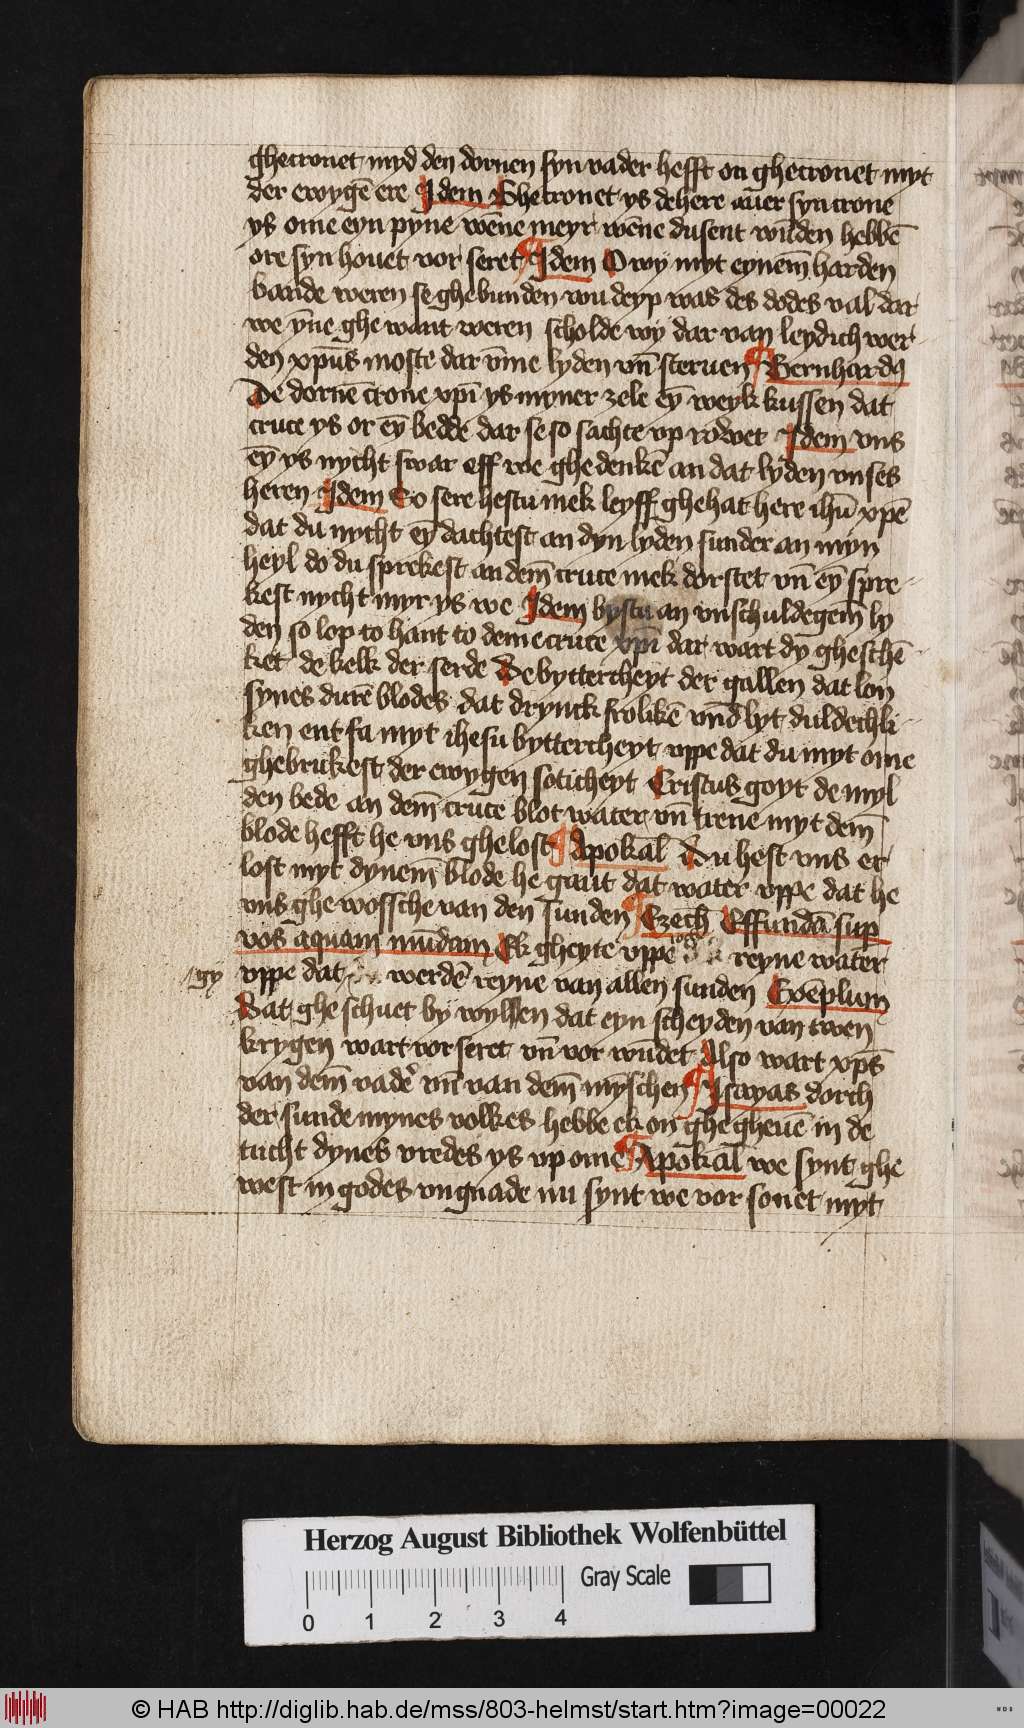 ghecronet myd den dornen syn vader hefft on ghecronet myt
der ewygē ere Idem Ghecronet ys de here auer syn crone
ys ome eyn pyne wēne meyr wēne dusent wūden hebbē
ore syn houet vor seret Idem O wy myt eynem̄ harden
bande weren se ghebunden wu deyp was des dodes val dar
we ȳne ghe want weren scholde wy dar van leydich wer
den xpūs moste dar v̄me lyden vn̄ steruen Bernhardꝰ
De dornē crone xpī ys myner zele eȳ weyk kussen dat
cruce ys or eȳ bedde dar se so sachte vp rowet Idem vns
eȳ ys nycht swar eff we ghe denkē an dat lyden vnses
heren Idem So sere hestu mek leyff ghehat here ihū xpē
dat du nycht eȳ dachtest an dyn lyden sunder an myn
heyl do du sprekest an dem̄ cruce mek dorstet vn̄ eȳ spre
kest nycht myr ys we Idem bystu an vnschuldegem̄ ly
den so lop to hant to deme cruce xpī dar wart dy gheschē
ket de kelk der serde De byttercheyt der gallen dat lon
synes durē blodes dat drynck frolikē vnd̄ lyt duldechli
ken ent fa myt ihesu byttercheyt vppe dat du myt ome
ghebrukest der ewygen soticheyt Cristus goyt de myl
den bede an dem̄ cruce blot water vn̄ trene myt dem̄
blode hefft he vns ghelost Apokal̄ Du hest vns er
lost myt dynem̄ blode he gaut dat water vppe dat he
vns ghe wossche van den sunden Ezech̄ Effundā sup
vos aquam mūdam Ek gheyte vppe reyne water
gy vppe dat werdē reyne van allen sunden Exēplum
Bat ghe schuet by wyllen dat eyn scheyden van twen
krygen wart vor seret vn̄ vor wūdet Also wart xpūs
van dem̄ vader vn̄ van dem̄ mȳschen Isayas dorch
der sunde mynes volkes hebbe ek on ghegheuē in de
tucht dynes vredes ys vp ome Apokal̄ we synt ghe
west in godes vngnade nu synt we vor sonet myt
Herzog August Bibliothek Wolfenbüttel
Gray Scale
0 1 2 3 4
© HAB http://diglib.hab.de/mss/803-helmst/start.htm?image=00022